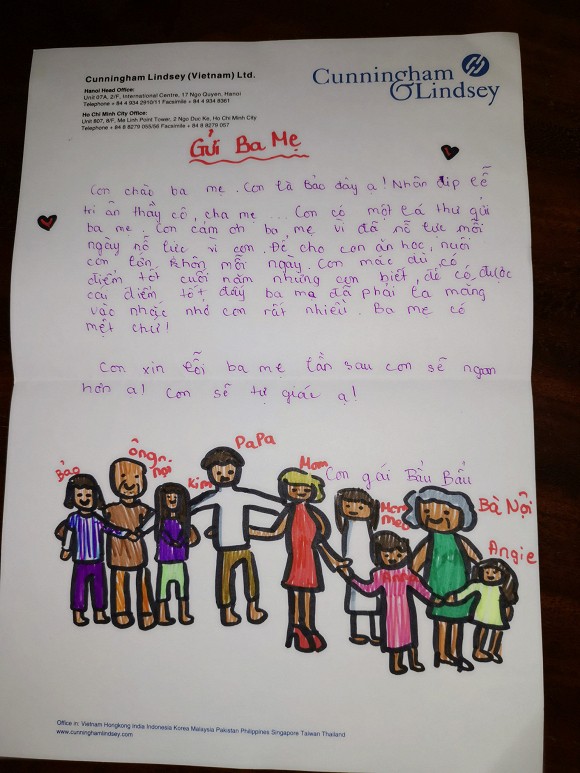 Cunningham Lindsey (Vietnam) Ltd.
Cunningham
& Lindsey
Hanoi Head Office:
Unit 07A, 2/F, International Centre, 17 Ngo Quyen, Hanoi
Telephone + 84 4 934 2910/11 Facsimile + 84 4 934 8361
Ho Chi Minh City Office:
Unit 807, 8/F, Me Linh Point Tower, 2 Ngo Duc Ke, Ho Chi Minh City
Telephone + 84 8 8279 055/56 Facsimile + 84 8 8279 057
Gửi Ba Mẹ
Con chào ba mẹ. Con là Bảo đây ạ! Nhân dịp lễ
tri ân thầy cô, cha mẹ ... Con có một lá thư gửi
ba mẹ. Con cám ơn ba, mẹ vì đã nỗ lực mỗi
ngày nỗ lực vì con. Để cho con ăn học, nuôi
con lớn khôn mỗi ngày. Con mặc dù có
điểm tốt cuối năm nhưng con biết, để có được
cái điểm tốt đấy ba mẹ đã phải la mắng
và nhắc nhở con rất nhiều. Ba mẹ có
mệt chứ!
Con xin lỗi ba mẹ lần sau con sẽ ngoan
hơn ạ! Con sẽ tự giác ạ!
Con gái Bầu Bẩu
Bảo
ông nội
Kim
PaPa
Mom
Bà Nội
Angie
Office in: Vietnam Hongkong India Indonesia Korea Malaysia Pakistan Philippines Singapore Taiwan Thailand
www.cunninghamlindsey.com